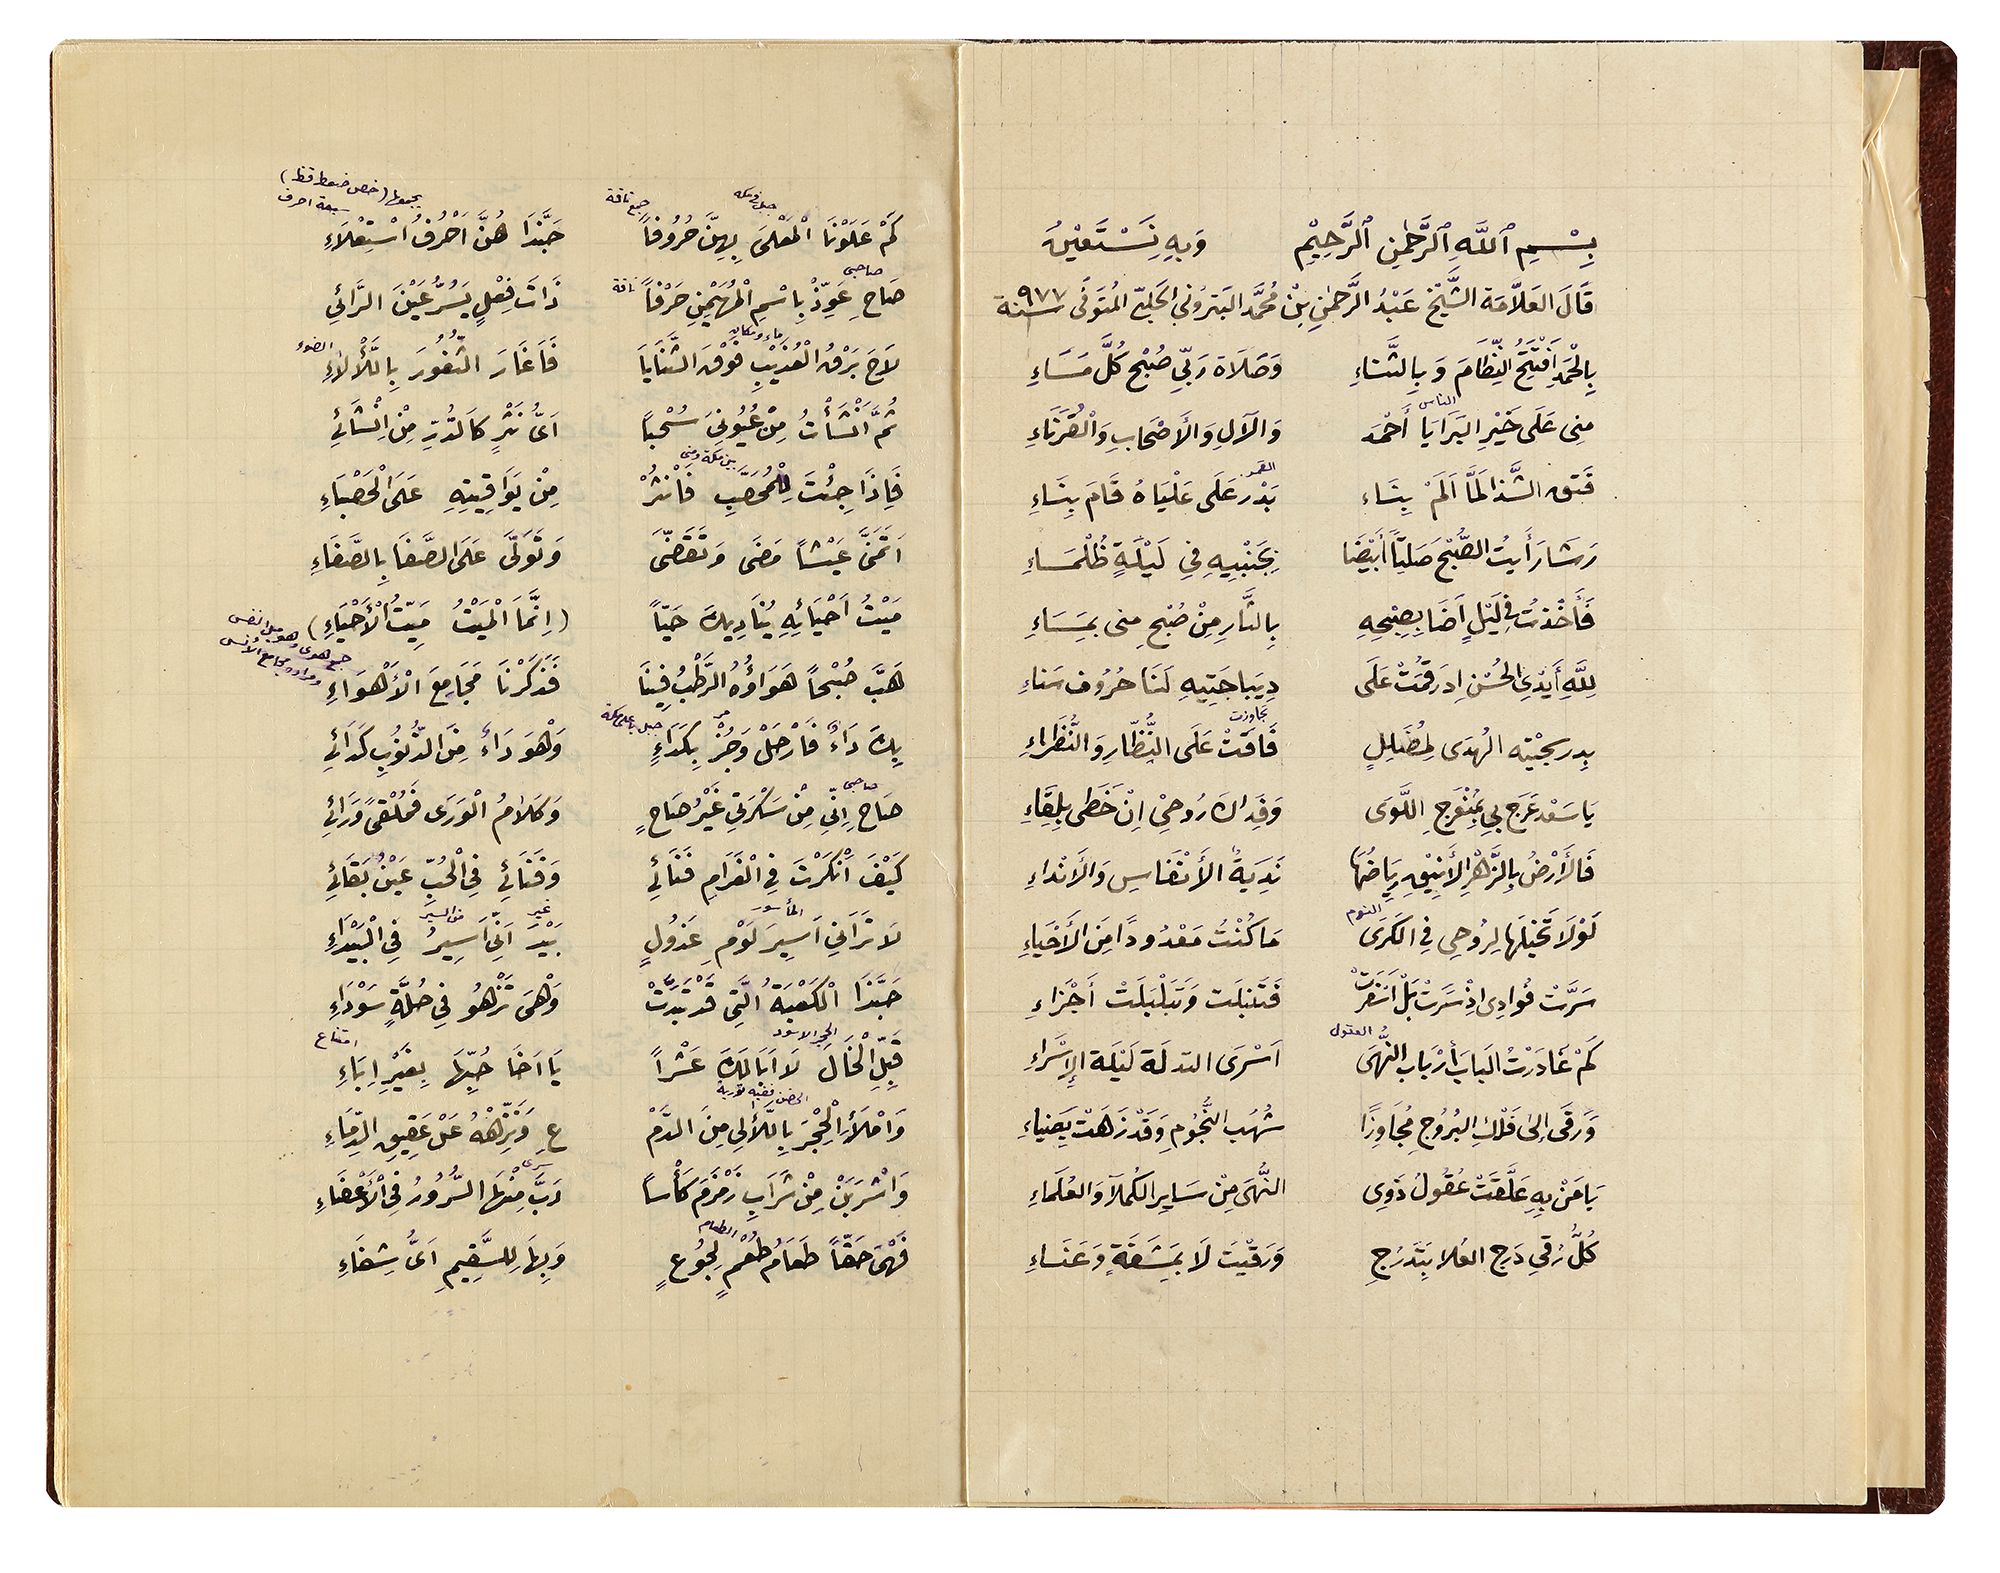 بِسْمِ ٱللَّهِ ٱلرَّحْمٰنِ ٱلرَّحِيْمِ وَبِهِ نَسْتَعِيْنُ
قَالَ العَلاَّمَة الشَّيْخ عَبْدُ الرَّحمٰنِ بنْ مُحمَّد البَتروُني الحَلبيّ المُتوَفّى سنة ٩٧٧
بِالْحَمْدِ أَفْتَتِحُ النِّظَامَ وَبِالثَّنَاءِ وَصَلَاة رَبّي صُبْح كُلَّ مَسَاءِ
الناس
مِنى عَلَى خَيْرِ البَرَايَا أَحْمَد وَالآلِ وَالأَصْحَابِ وَالْقُرَنَاءِ
القمر
فَتق الشَّذا لَمَّا أَلَمْ بِنَاء بَدْرٌ عَلَى عَلْيَاهُ قَامَ بِنَاءِ
رَشَا رَأيتُ الصُّبْحَ صَلْتاً أَبْيَضَا بِجَنْبِيهِ فِي لَيْلَةٍ ظُلْمَاءِ
فَأَخَذتُ فِي لَيْلٍ أَضَا بِصِبْحِهِ بِالثَّارِ مِنْ صُبْحِ مِنى بِمَسَاءِ
لِلَّهِ أَيْدِي الحُسْنِ اد رَقَمَتْ عَلَى دِيبَاجَتِيهِ لَنَا حُرُوف سَنَاءِ
تجاوزت
بِدر الهُدَى لِمُضَلِلٍ فَاقَتْ عَلَى النُّظَّارِ وَالنُّظَرَاءِ
يَا سَعْد عَرِّج بِي بِمُنْعَرَجِ اللَّوَى وَفِدَاكَ رُوحِيْ اِنْ خَطى بِلِقَاءِ
فَالأَرْضُ بِالزَّهْرِ الأَنِيْقِ رِيَاضُهَا نَدِيَةُ الأَنْفَاسِ وَالأَنْدَاءِ
النوم
لَوْلَا تَخَيُّلهَا لِرُوحِي فِي الكَرَى مَا كُنْتُ مَعْدُودًا مِنَ الأَحْيَاءِ
سَرَّتْ فُوَادِى اِذْ سَرَتْ بَلْ أَسْفَرَتْ وَتَبَلْبَلَتْ أَجْزَاءِ
العقول
كَمْ غَادَرْتُ الْبَابَ أَرْبَاب النُّهَى اَسْرَى لَيْلَة الإِسْرَاءِ
وَرَقَى اِلى فَلَكِ البُرُوجِ مُجَاوِزًا شُهَب النُّجُومِ وَقَدْ زَهَتْ بِضِيَاءِ
يَا مَنْ بِهِ عَلَّقَتْ عُقُولُ ذَوِي النُّهَى مِنْ سَايِر الكُمَلاَ وَالعُلَمَاءِ
كُلُّ رُقي دَرج العُلا بِتَدَرّجِ وَرَقيْتَ لَا بِمَشَقَةٍ وَعَنَاءِ
جبل في مكه جمع ناقة يجمعها (خص ضغط قظ) سبعة احرف
كَمْ عَلَوْنَا الْمَعْلىَ بِهِنَّ حُرُوفاً حَبَّذَا هُنَّ اَحْرُفُ اُسْتِعْلَاءِ
صاحبي ناقة
صَاحِ عَوِّذْ بِاسْمِ الْمُهَيْمِنِ حَرْفاً ذَاتَ فِعْلٍ يَسُرُّ عَيْنَ الرَّائِي
ماء ومكان الضوء
لاَحَ بَرْقُ الْعُذَيْبِ فَوْقَ الثَّنَايَا فَاَغَارَ الثُّغُورَ بِاللَّأْلَاءِ
ثُمَّ اَنْشَأْتُ مِنْ عُيُونِيَ سُحْباً اَىُّ نَثْرٍ كَالدُّرِّ مِنْ اِنْشَائِي
بين مكة ومنى
فَإِذَا جِئْتَ لِلْمُحَصَّبِ فَانْثُرْ مِنْ يَوَاقِيتِهِ عَلَى الْحَصْبَاءِ
اَتَمَنَّى عَيْشاً مَضَى وَتَقَضَّى وَتَوَلَّى عَلَى الصَّفَا بِالصَّفَاءِ
مَيْتُ اَحْيَائِهِ يُنَادِيكَ حَيّاً (اِنَّمَا الْمَيْتُ مَيّتُ الْأَحْيَاءِ)
جمع هوى وهو ميل النفس ومراده مجامع الأنس
هَبَّ صُبْحاً هَوَاؤُهُ الرَّطْبُ فِينَا فَذَكَرْنَا مَجَامِعَ الْأَهْوَاءِ
مر جبل باعلى مكة
بِكَ دَاءٌ فَارْحَلْ وَجُزْ بِكَدَاءٍ وَهْوَ دَاءٌ مِنَ الذُّنُوبِ كَدَائِي
صاحبي
صَاحِ اِنِّي مِنْ سَكْرَتِي غَيْرُ صَاحٍ وَكَلاَمُ الْوَرَى فَمُلْقىً وَرَائِي
كَيْفَ اَنْكَرْتَ فِي الْغَرَامِ فَنَائِي وَفَنَائِي فِي الْحُبِّ عَيْنُ بَقَائِي
المأسور غير من السير
لاَ تَرَانِي اَسِيرَ لَوْمِ عَذُولٍ بَيْدَ اَنِّي اَسِيرُ فِي الْبَيْدَاءِ
حَبَّذَا الْكَعْبَةُ الَّتِي قَدْ تَبَدَّتْ وَهْىَ تَزْهُو فِي حُلَّةٍ سَوْدَاءِ
الحجر الاسود امتناع
قَبِّلِ الْخَالَ لاَ اَبَا لَكَ عَشْراً يَا اَخَا حُبِّهَا بِغَيْرِ اِبَاءِ
الحضن ففيه تورية
وَامْلَأِ الْحِجْرَ بِاللَّآلِي مِنَ الدَّمْ عِ وَنَزِّهْهُ عَنْ عَقِيقِ الدِّمَاءِ
سرى
وَاشْرَبَنْ مِنْ شَرَابِ زَمْزَمَ كَأْساً دَبَّ مِنْهَا السُّرُورُ فِي الْأَعْضَاءِ
الطعام
فَهْىَ حَقّاً طَعَامُ طُعْمٍ لِجُوعٍ وَبِهَا لِلسَّقِيمِ اَىُّ شِفَاءِ